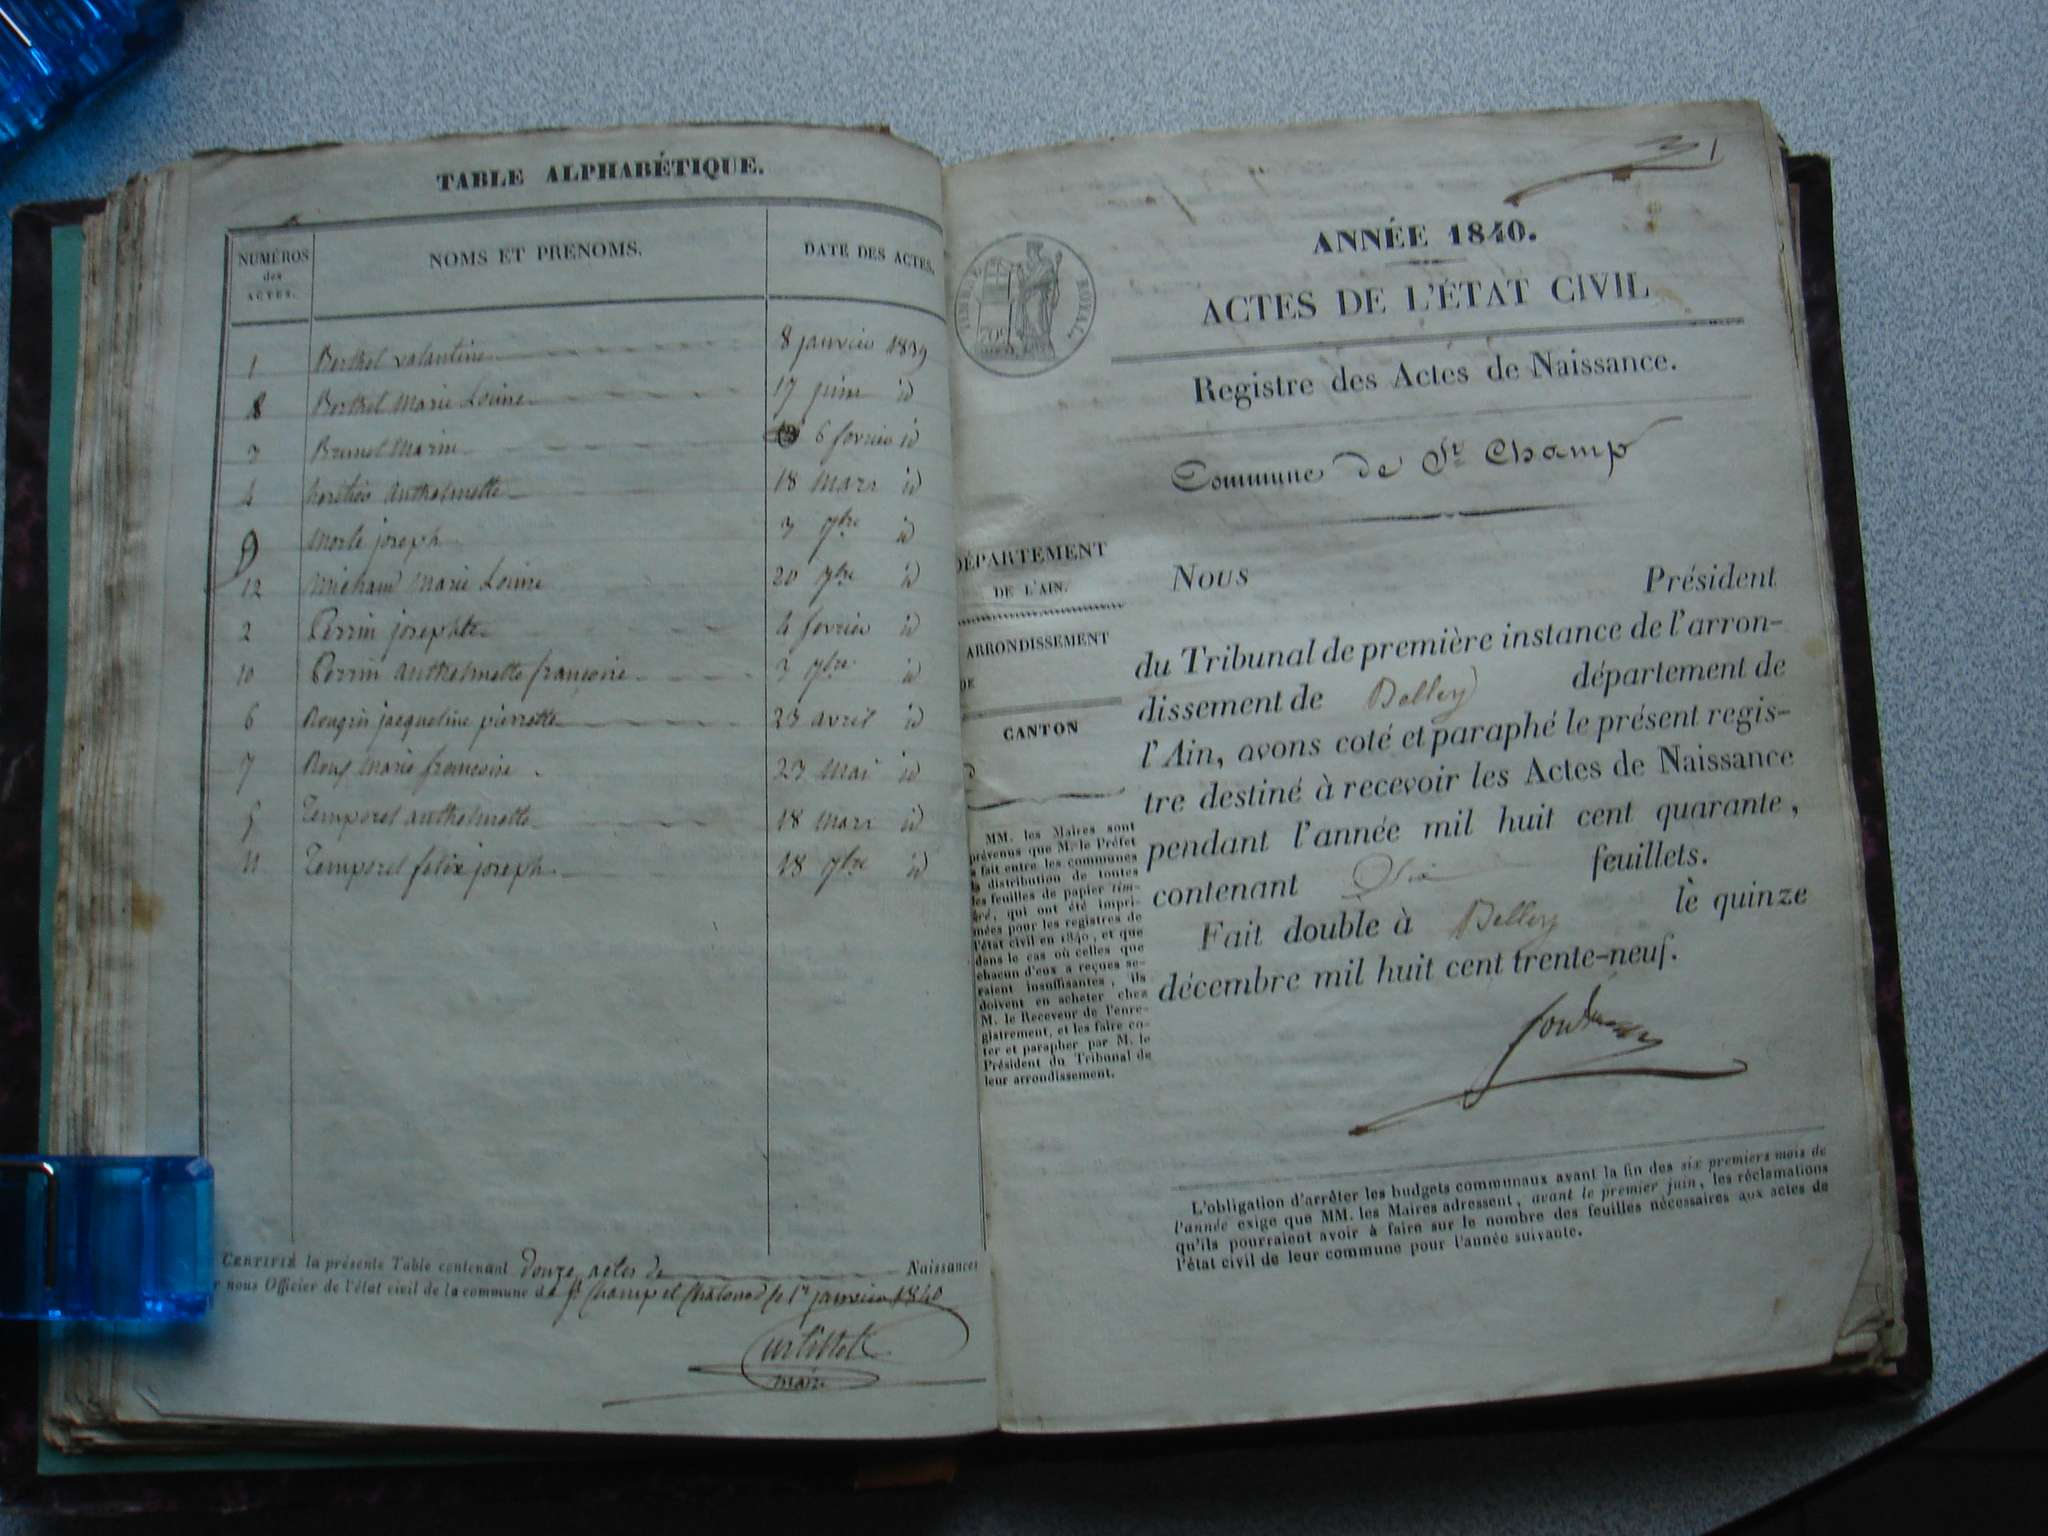 TABLE ALPHABÉTIQUE.
NUMÉROS
des
ACTES.
NOMS ET PRENOMS.
DATE DES ACTES.
1 Berthet valantine 8 janvier 1839
8 Berthet Marie Louise 17 juin id
3 Brunet Marin 6 fevrier id
4 anthelmette 18 mars id
9 Morte joseph 3 7bre id
12 Michaud Marie Louise 20 9bre id
2 Perrin josephte 4 fevrier id
10 Perrin anthelmette françoise 3 7bre id
6 Rougin jacqueline pierrette 23 avril id
7 Roux Marie françoise 23 Mai id
5 Temporel anthelmette 18 mars id
11 Temporel felix joseph 18 9bre id
CERTIFIÉ la présente Table contenant douze actes de Naissances
r nous Officier de l'état civil de la commune de St Champ et Chatonod le 1er janvier 1840
maire
1
ANNÉE 1840.
ACTES DE L'ÉTAT CIVIL
TIMBRE ROYAL.
Registre des Actes de Naissance.
Commune de St Champ
DÉPARTEMENT
DE L'AIN.
ARRONDISSEMENT
DE
CANTON
MM. les Maires sont
prévenus que M. le Préfet
a fait entre les communes
la distribution de toutes
les feuilles de papier tim-
bré, qui ont été impri-
mées pour les registres de
l'état civil en 1840, et que
dans le cas où celles que
chacun d'eux a reçues se-
raient insuffisantes, ils
doivent en acheter chez
M. le Receveur de l'enre-
gistrement, et les faire co-
ter et parapher par M. le
Président du Tribunal de
leur arrondissement.
Nous Président
du Tribunal de première instance de l'arron-
dissement de Belley département de
l'Ain, avons coté et paraphé le présent regis-
tre destiné à recevoir les Actes de Naissance
pendant l'année mil huit cent quarante,
contenant Six feuillets.
Fait double à Belley le quinze
décembre mil huit cent trente-neuf.
L'obligation d'arrêter les budgets communaux avant la fin des six premiers mois de
l'année exige que MM. les Maires adressent, avant le premier juin, les réclamations
qu'ils pourraient avoir à faire sur le nombre des feuilles nécessaires aux actes de
l'état civil de leur commune pour l'année suivante.